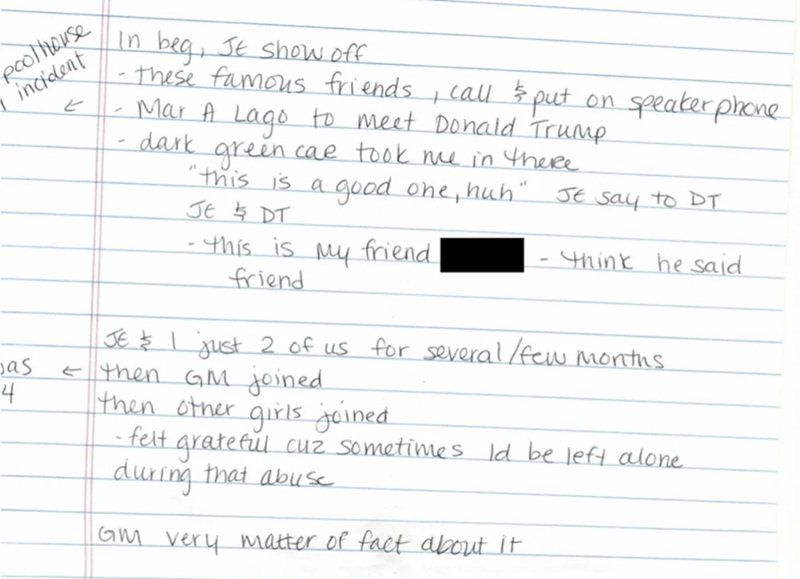 poolhouse
incident
←
In beg, JE show off
- these famous friends, call & put on speakerphone
- Mar A Lago to meet Donald Trump
- dark green cae took me in there
"this is a good one, huh" JE say to DT
JE & DT
- this is my friend - think he said
friend
JE & I just 2 of us for several/few months
← then GM joined
4
then other girls joined
- felt grateful cuz sometimes Id be left alone
during that abuse
GM very matter of fact about it